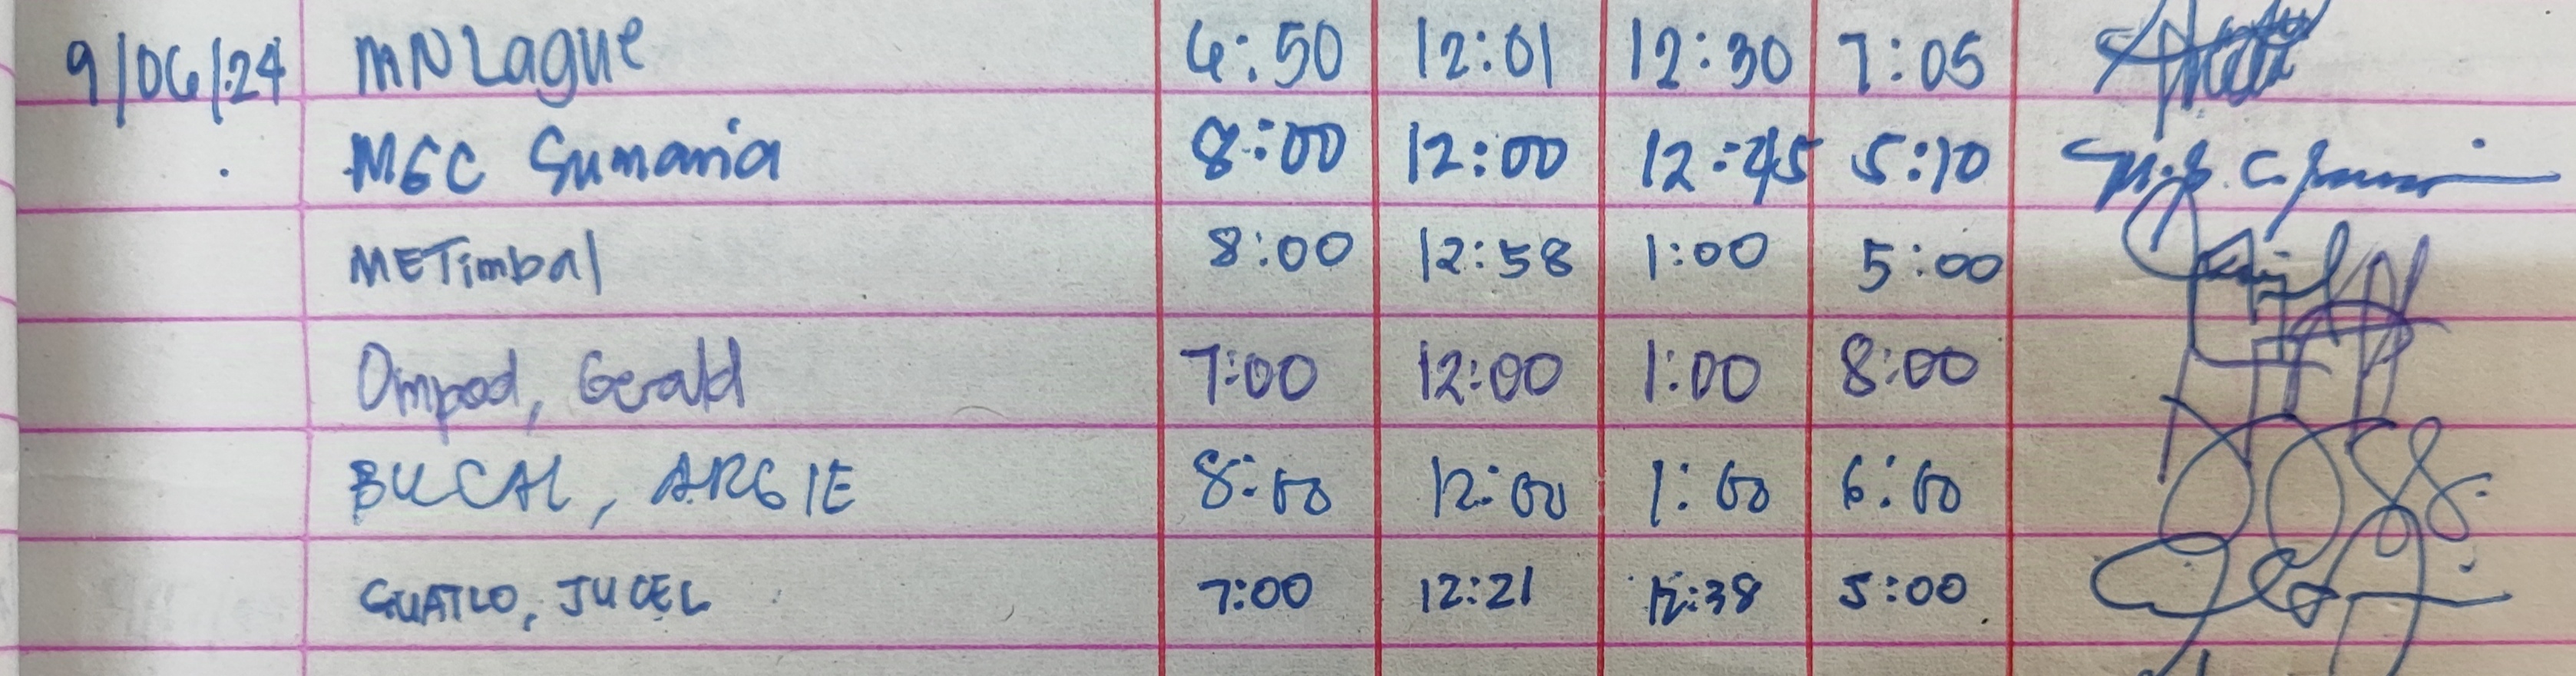 9/06/24 MNLague 6:50 12:01 12:30 7:05
MGC Sumania 8:00 12:00 12:45 5:10
METimbal 8:00 12:58 1:00 5:00
Ompod, Gerald 7:00 12:00 1:00 8:00
BUCAL, ARGIE 8:00 12:00 1:00 6:00
GUATLO, JUCEL 7:00 12:21 12:38 5:00